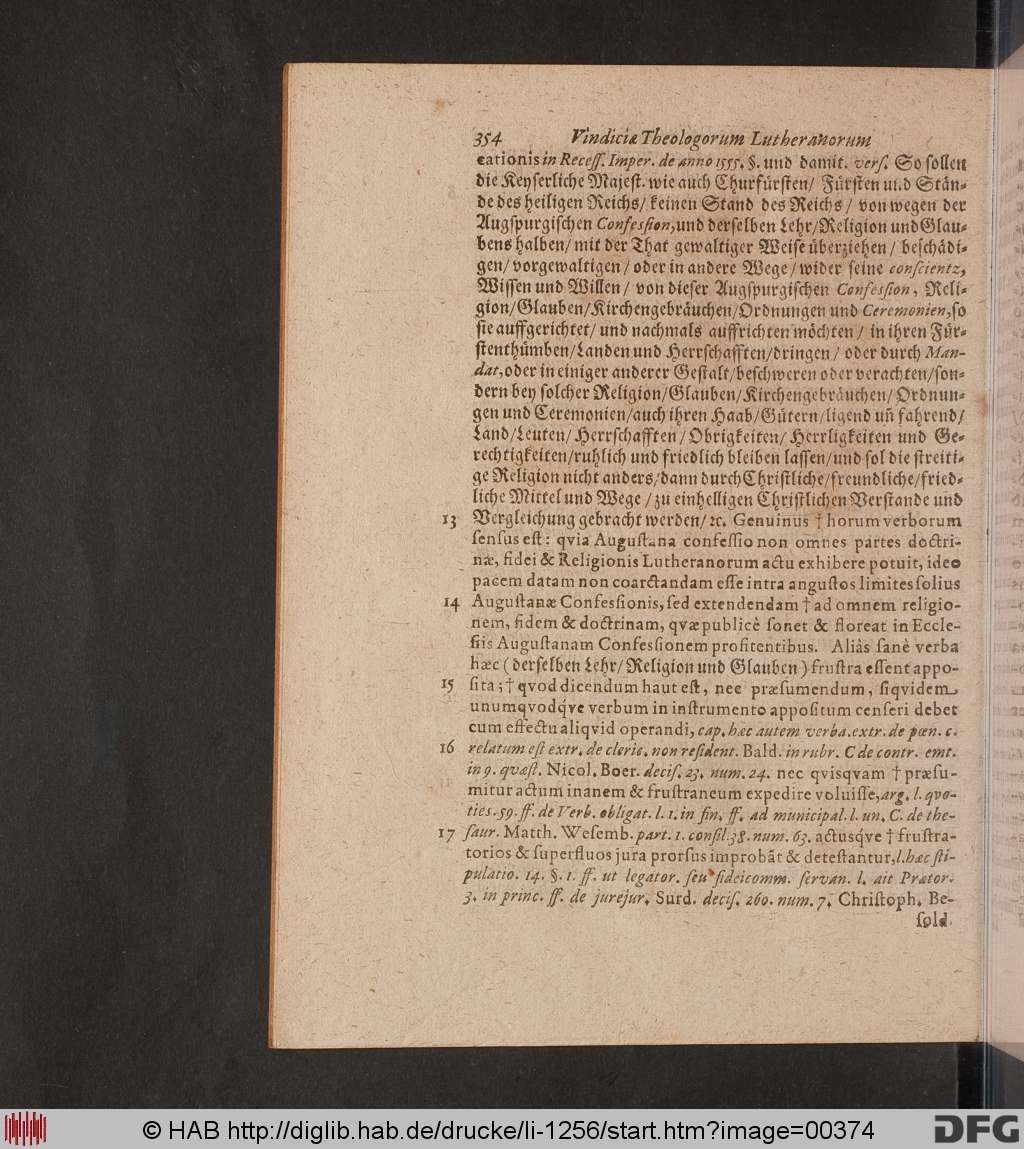 354 Vindiciæ Theologorum Lutheranorum
cationis in Recess. Imper. de anno 1555. §. und damit. vers. So sollen
die Keyserliche Majest. wie auch Churfürsten/ Fürsten und Stän-
de des heiligen Reichs/ keinen Stand des Reichs/ von wegen der
Augspurgischen Confession, und derselben Lehr/Religion und Glau-
bens halben/ mit der That gewaltiger Weise überziehen/ beschädi-
gen/ vorgewaltigen/ oder in andere Wege/ wider seine conscientz,
Wissen und Willen/ von dieser Augspurgischen Confession, Reli-
gion/Glauben/Kirchengebräuchen/Ordnungen und Ceremonien, so
sie auffgerichtet/ und nachmals auffrichten möchten/ in ihren Für-
stenthümben/Landen und Herrschafften/dringen/ oder durch Man-
dat, oder in einiger anderer Gestalt/beschweren oder verachten/son-
dern bey solcher Religion/Glauben/Kirchengebräuchen/ Ordnun-
gen und Ceremonien/auch ihren Haab/Gütern/ligend uñ fahrend/
Land/Leuten/ Herrschafften/ Obrigkeiten/ Herrligkeiten und Ge-
rechtigkeiten/ruhlich und friedlich bleiben lassen/und sol die streiti-
ge Religion nicht anders/dann durch Christliche/freundliche/fried-
liche Mittel und Wege/ zu einhelligen Christlichen Verstande und
13 Vergleichung gebracht werden/ ꝛc. Genuinus † horum verborum
sensus est: qvia Augustana confessio non omnes partes doctri-
næ, fidei & Religionis Lutheranorum actu exhibere potuit, ideo
pacem datam non coarctandam esse intra angustos limites solius
14 Augustanæ Confessionis, sed extendendam † ad omnem religio-
nem, fidem & doctrinam, qvæ publicè sonet & floreat in Eccle-
siis Augustanam Confessionem profitentibus. Aliàs sanè verba
hæc (derselben Lehr/Religion und Glauben) frustra essent appo-
15 sita; † qvod dicendum haut est, nec præsumendum, siqvidem
unumqvodq́ve verbum in instrumento appositum censeri debet
cum effectu aliqvid operandi, cap. hæc autem verba. extr. de pœn. c.
16 relatum est extr. de cleric. non resident. Bald. in rubr. C de contr. emt.
in 9. quæst. Nicol. Boer. decis. 23. num. 24. nec qvisqvam † præsu-
mitur actum inanem & frustraneum expedire voluisse, arg. l. quo-
ties. 59. ff. de Verb. obligat. l. 1. in fin. ff. ad municipal. l. un. C. de the-
17 saur. Matth. Wesemb. part. 1. consil. 38. num. 63. actusq́ve † frustra-
torios & superfluos jura prorsus improbāt & detestantur, l. hæc sti-
pulatio. 14. §. 1. ff. ut legator. seu fideicomm. servan. l. ait Prætor.
3. in princ. ff. de jurejur. Surd. decis. 260. num. 7. Christoph. Be-
sold.
© HAB http://diglib.hab.de/drucke/li-1256/start.htm?image=00374
DFG